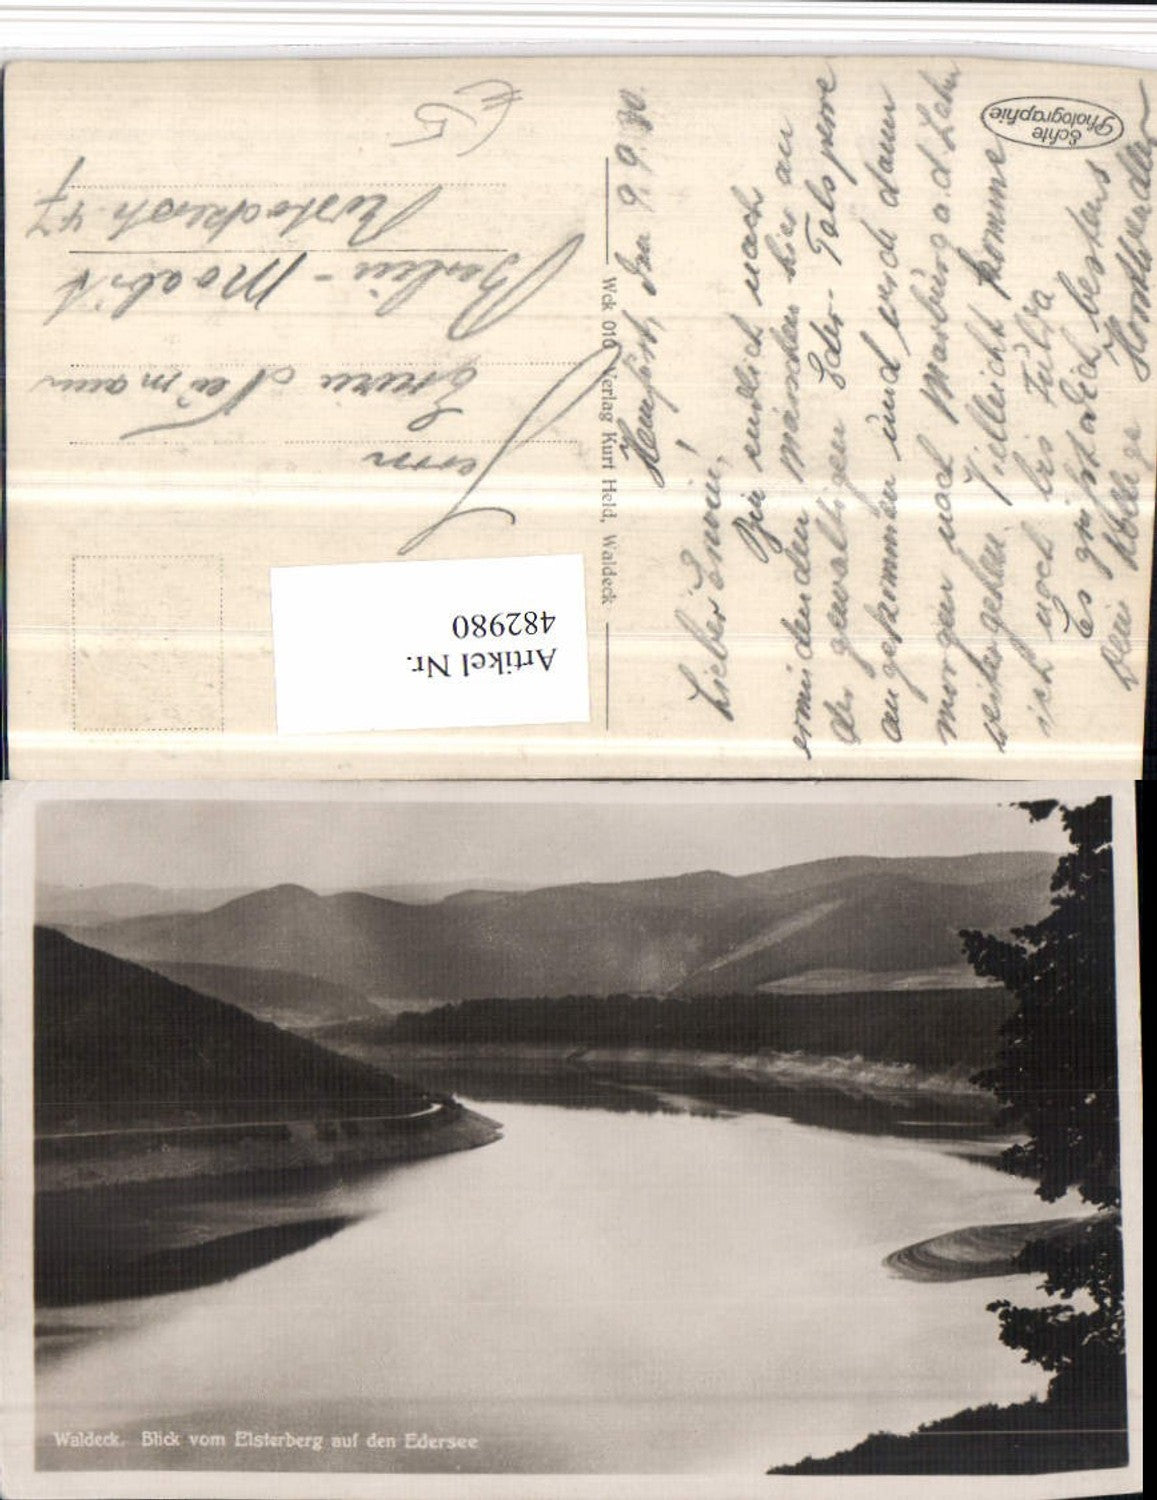 Echte
Photographie
€5
Herrn
Erwin Neumann
Berlin-Moabit
Rostockerstr. 47
Artikel Nr.
482980
Wck 010 Verlag Kurt Held, Waldeck
Hemfurth, den 9.9.30.
Lieber Erwin!
Bin endlich nach
ermüdenden Märschen hier an
der gewaltigen Eder-Talsperre
angekommen und werde dann
morgen nach Marburg a.d. Lahn
weitergehen. Vielleicht komme
ich noch bis Fulda
Es grüßt Dich bestens
Dein Kollege
Waldeck. Blick vom Elsterberg auf den Edersee